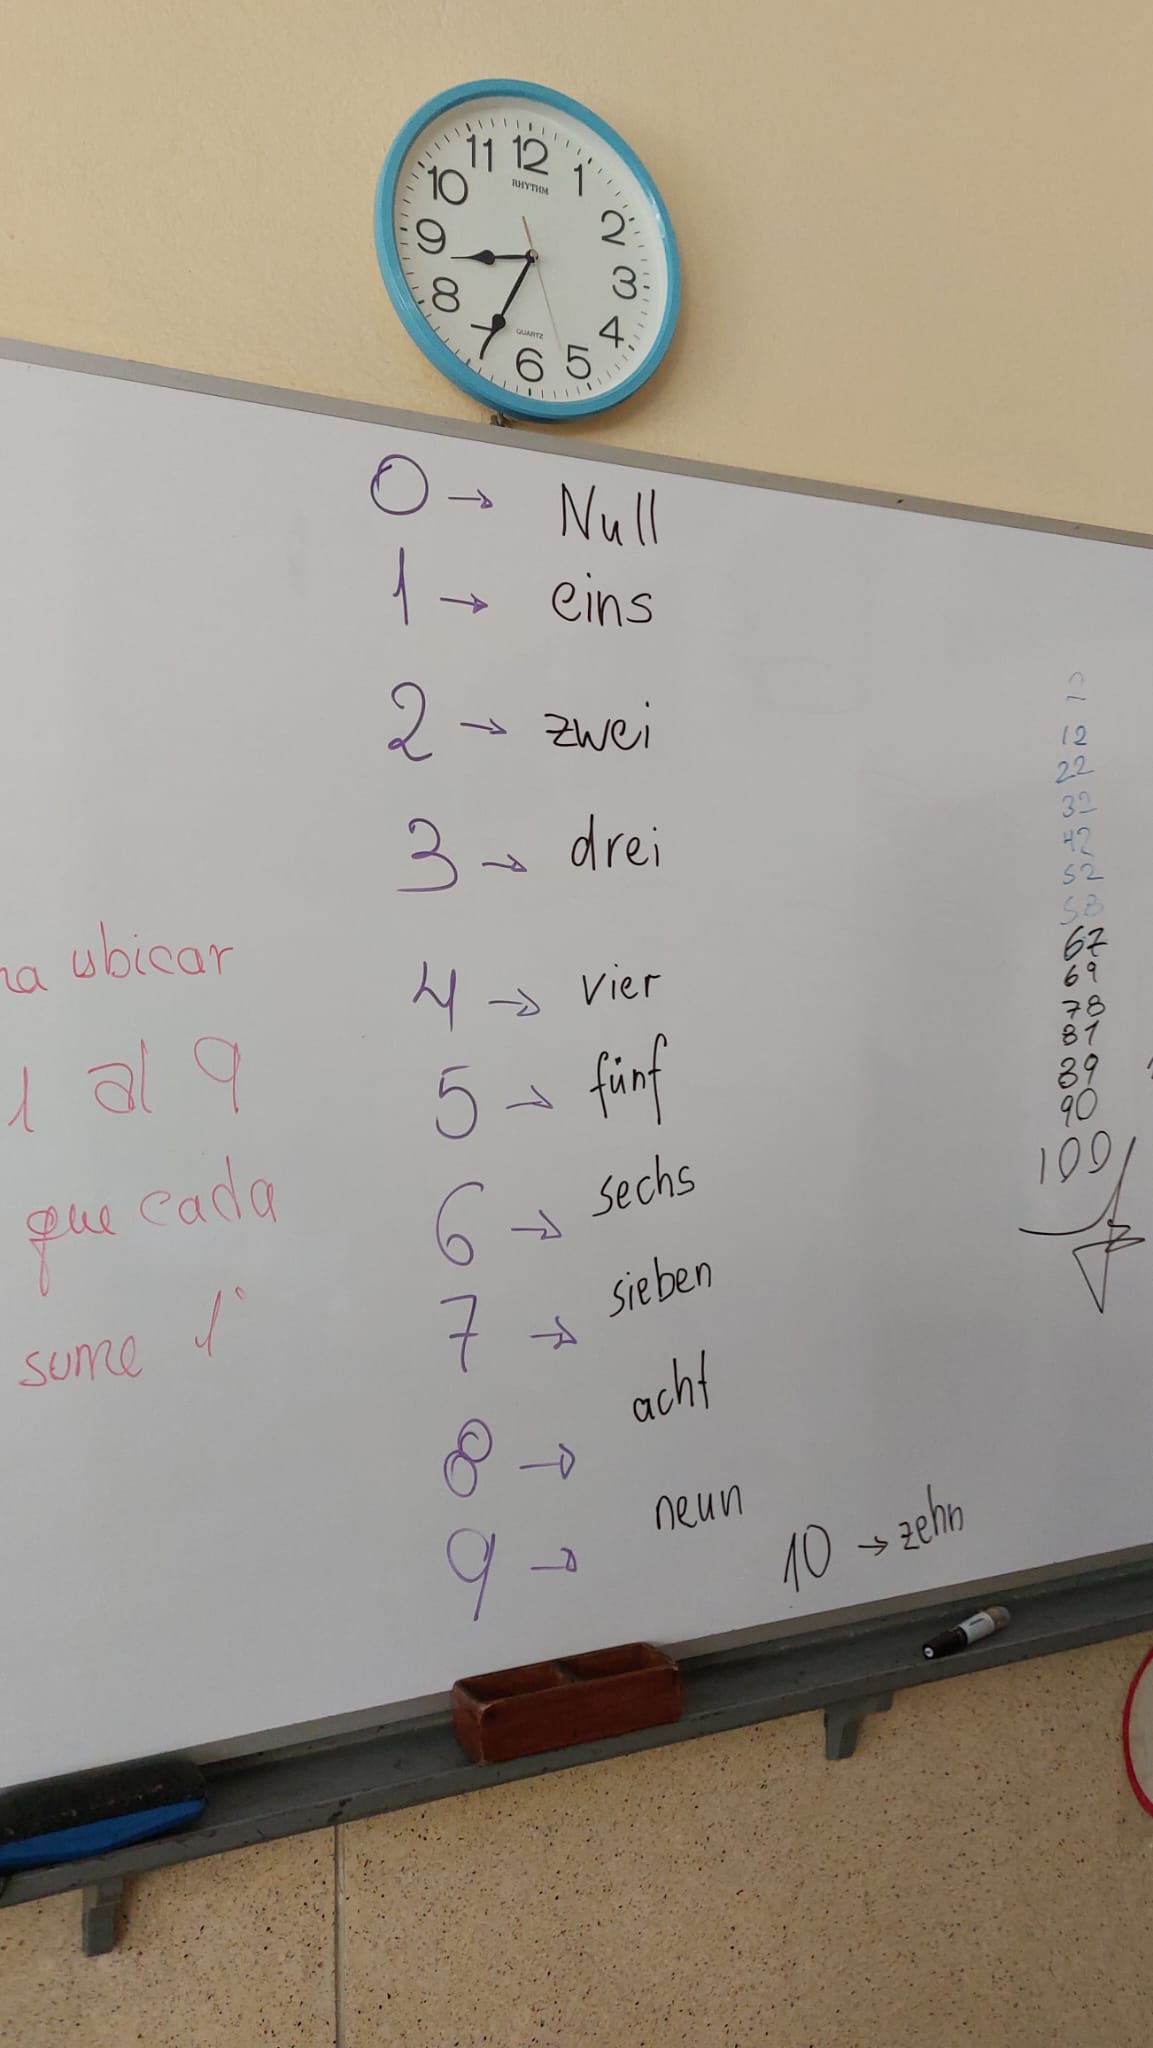 11 12 1
10 2
9 3
8 4
7 6 5
RHYTHM
QUARTZ
0 → Null
1 → eins
2 → zwei
3 → drei
4 → vier
5 → fünf
6 → sechs
7 → sieben
8 → acht
9 → neun
10 → zehn
ubicar
1 al 9
que cada
sume 1
12
22
32
42
52
58
67
69
78
81
89
90
100